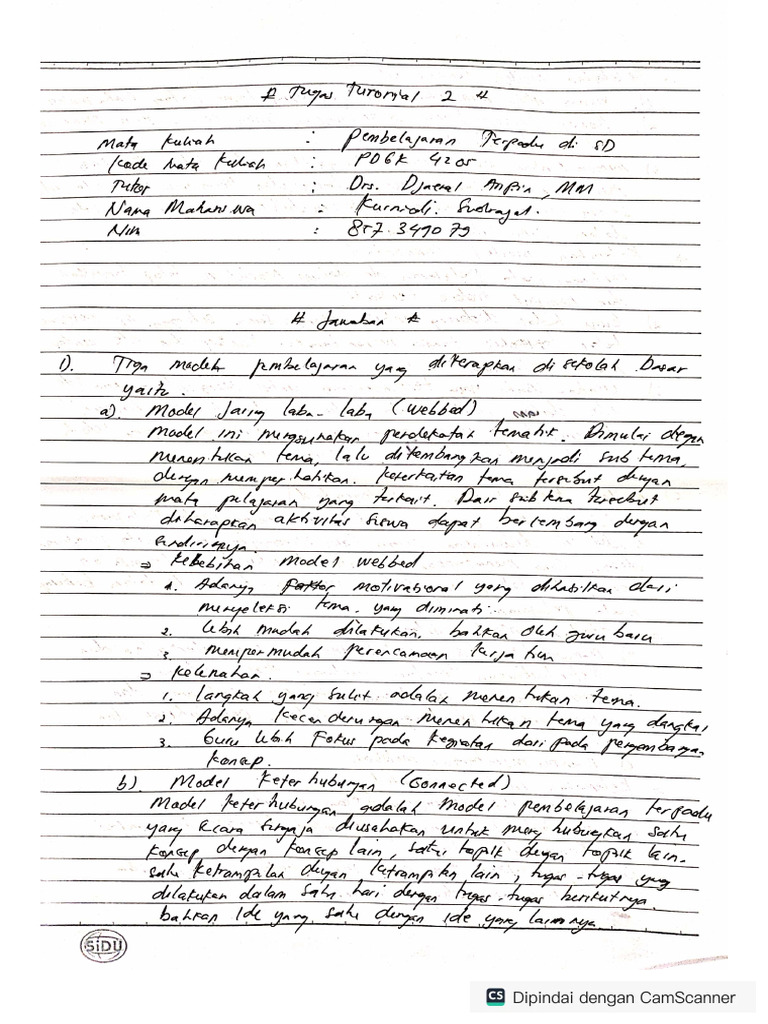 # Tugas Turorial 2 #
Mata Kuliah : Pembelajaran Terpadu di SD
Kode Mata Kuliah : PDGK 4205
Tutor : Drs. Djaenal Aripin, MM
Nama Mahasiswa : Kurniadi. Sudrajat.
Nim : 857.349079
# Jawaban #
1). Tiga model pembelajaran yang diterapkan di sekolah Dasar
yaitu.
a) Model Jaring laba-laba (webbed)
Model ini menggunakan pendekatan tematik. Dimulai dengan
menentukan tema, lalu ditembangkan menjadi sub tema,
dengan memperhatikan. keterkaitan tema tersebut dengan
mata pelajaran yang terkait. Dari sub tema tersebut
diharapkan aktivitas siswa dapat berkembang dengan
sendirinya.
⇒ Kelebihan Model webbed
1. Adanya Faktor motivasional yang dihasilkan dari
menyeleksi tema. yang diminati.
2. lebih mudah dilakukan. bahkan oleh guru baru
3. mempermudah perencanaan kerja tim
⇒ Kelemahan.
1. langkah yang sulit adalah menentukan tema.
2. Adanya kecenderungan menentukan tema yang dangkal
3. Guru lebih Fokus pada kegiatan dari pada pengembangan
konsep.
b). Model Keterhubungan (Connected)
Model keterhubungan adalah Model pembelajaran terpadu
yang secara sengaja diusahakan untuk menghubungkan satu
konsep dengan konsep lain, satu topik dengan topik lain.
satu ketrampilan dengan ketrampiln lain, tugas-tugas yang
dilakukan dalam satu hari dengan tugas-tugas berikutnya.
bahkan Ide yang satu dengan ide yang lainnya.
SiDU
CS Dipindai dengan CamScanner